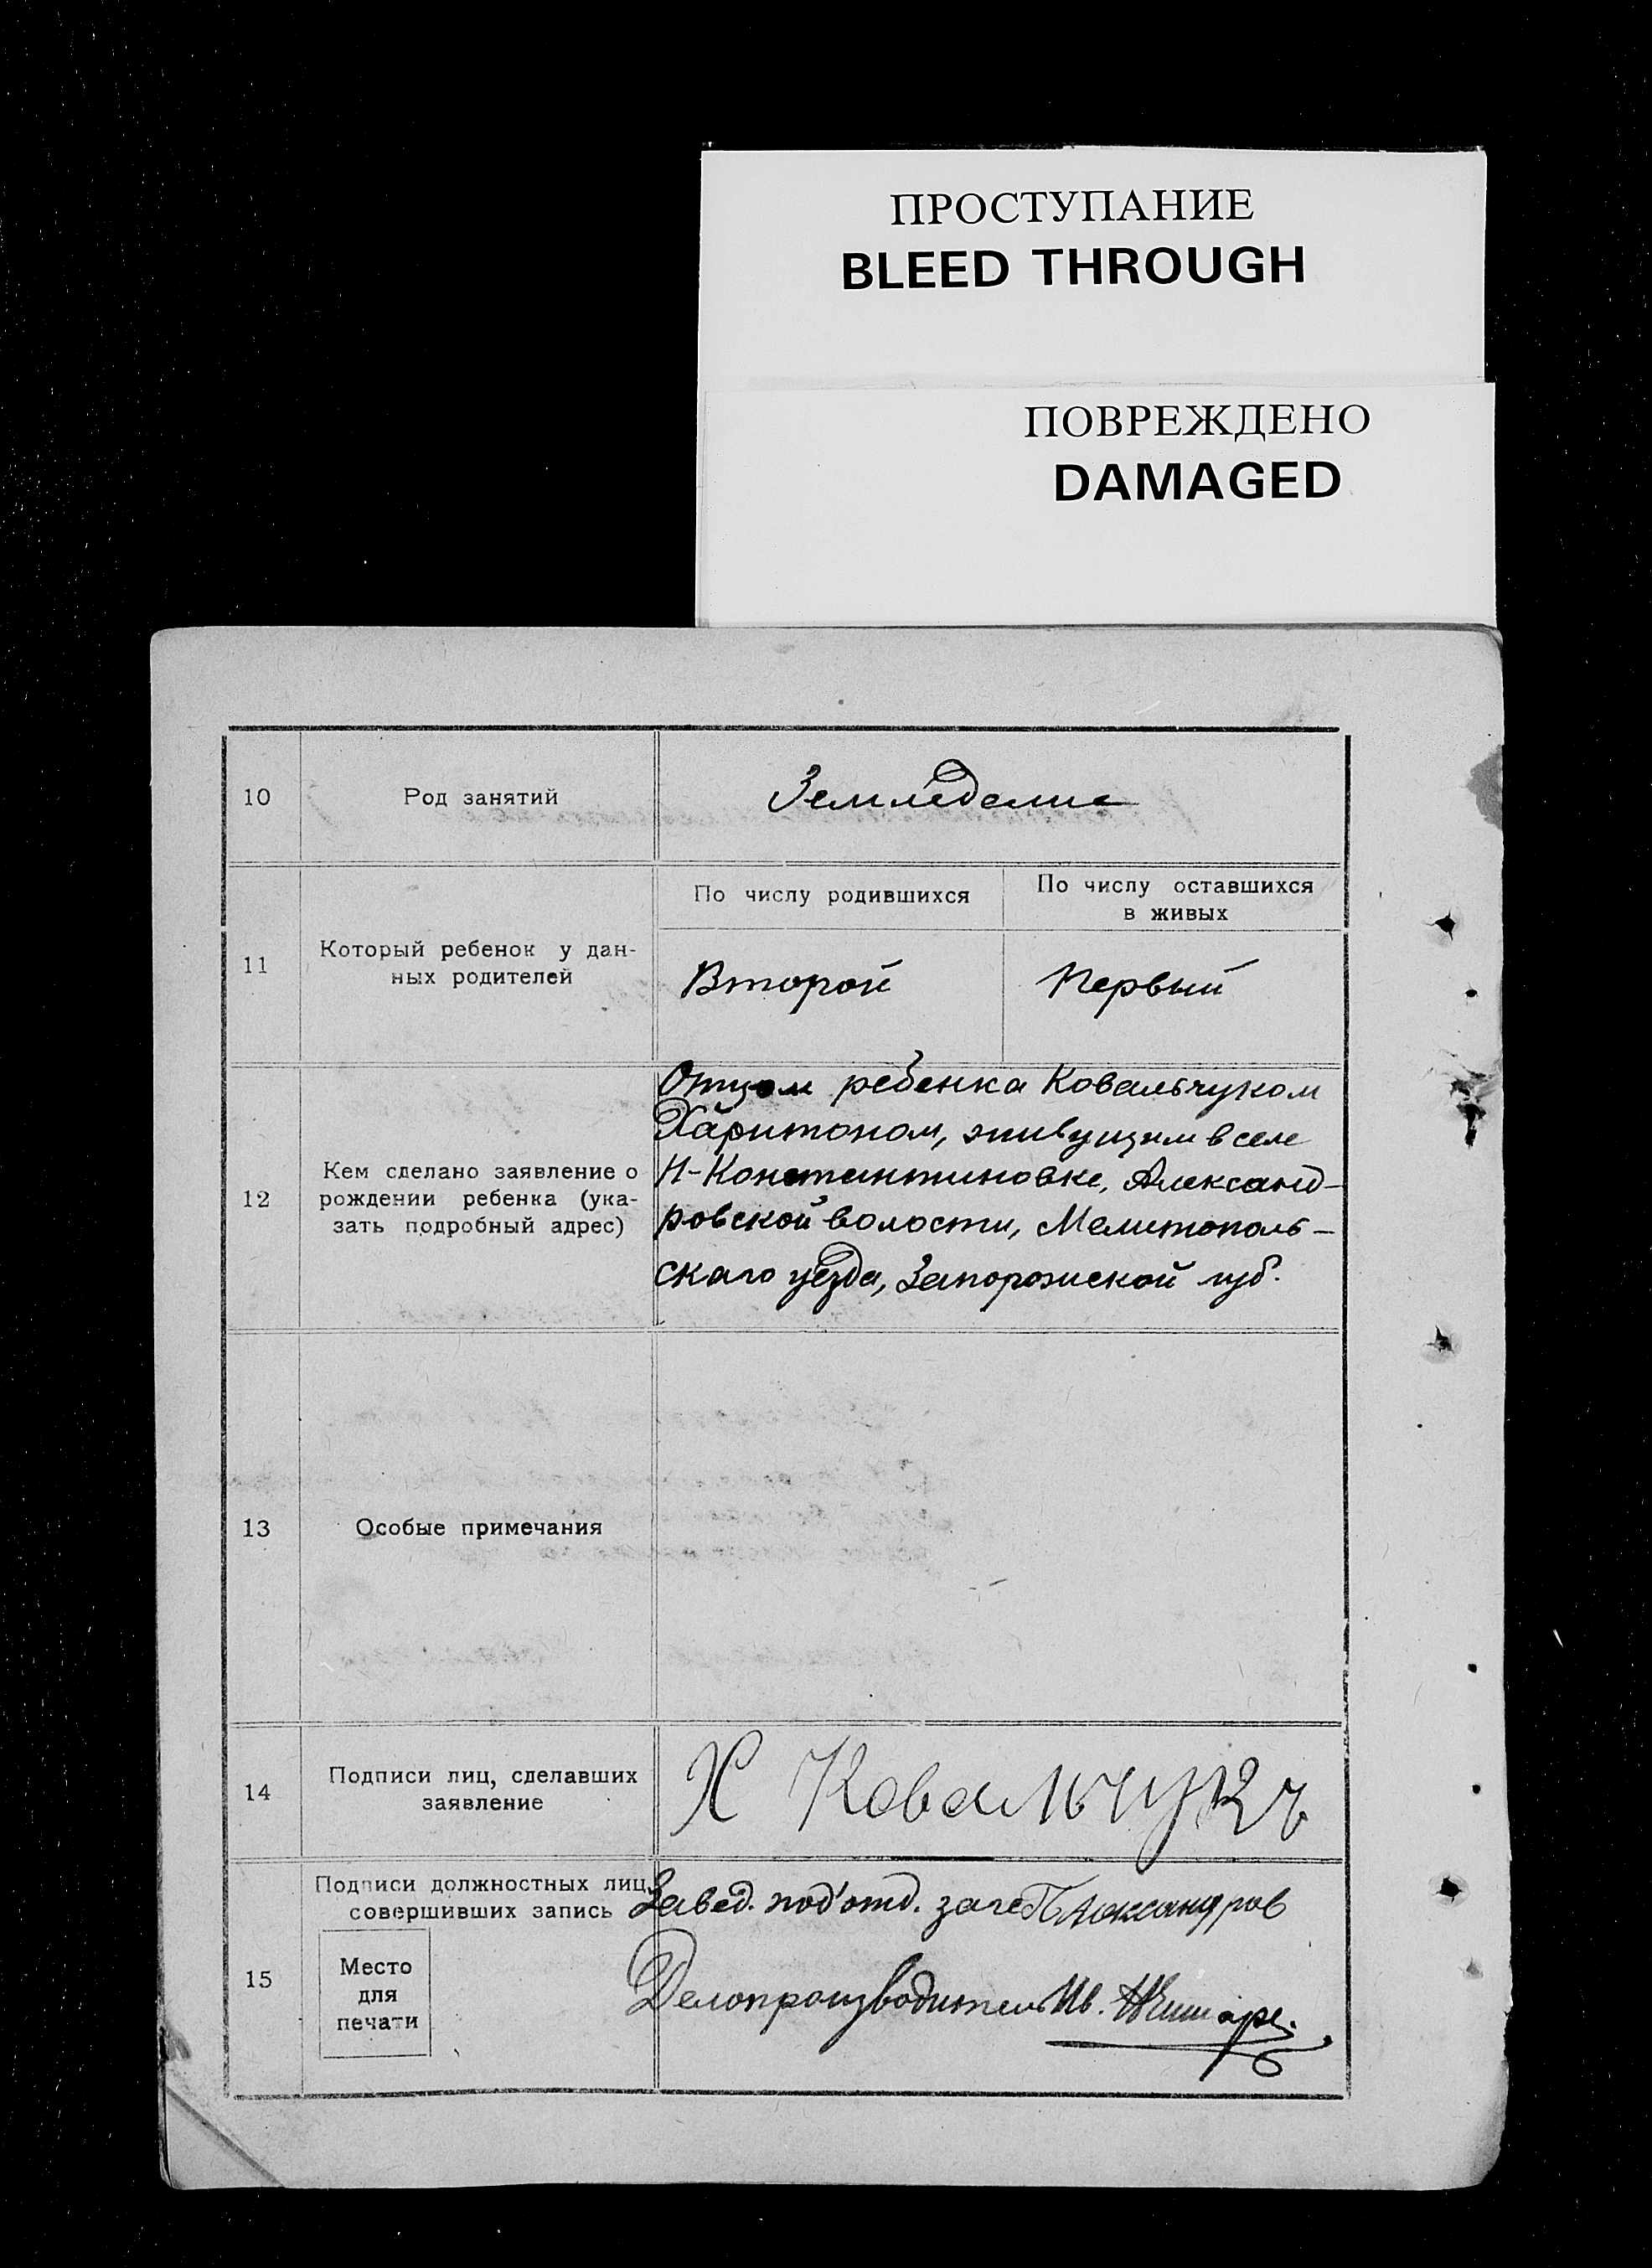 ПРОСТУПАНИЕ
BLEED THROUGH
ПОВРЕЖДЕНО
DAMAGED
10 Род занятий Земледелие
По числу родившихся По числу оставшихся
в живых
11 Который ребенок у дан-
ных родителей Второй Первый
Отцом ребенка Ковальчуком
Харитоном, живущим в селе
12 Кем сделано заявление о
рождении ребенка (ука-
зать подробный адрес)
Н-Константиновке, Александ-
ровской волости, Мелитополь-
скаго уезда, Запорожской губ.
13 Особые примечания
14 Подписи лиц, сделавших
заявление
Х Ковальчукъ
Подписи должностных лиц,
совершивших запись
Завед. под'отд. загс П Александров
15 Место
для
печати
Делопроизводитель Ив.